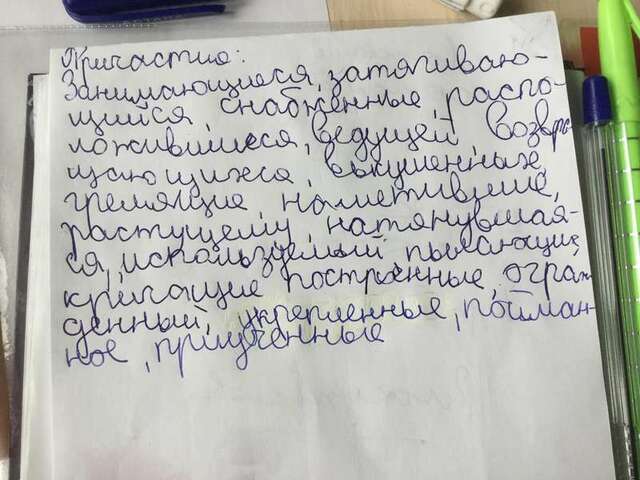 Причастие:
Занимающиеся, затягиваю-
щийся, снабженные, распо-
ложившиеся, ведущей, возвра-
щающихся, вкушенных,
гремящие, наметившие,
растущему, натянувшая-
ся, используемый, пылающие,
кричащие построенные, ограж-
денный, укрепленные, пойман-
ное, приученные